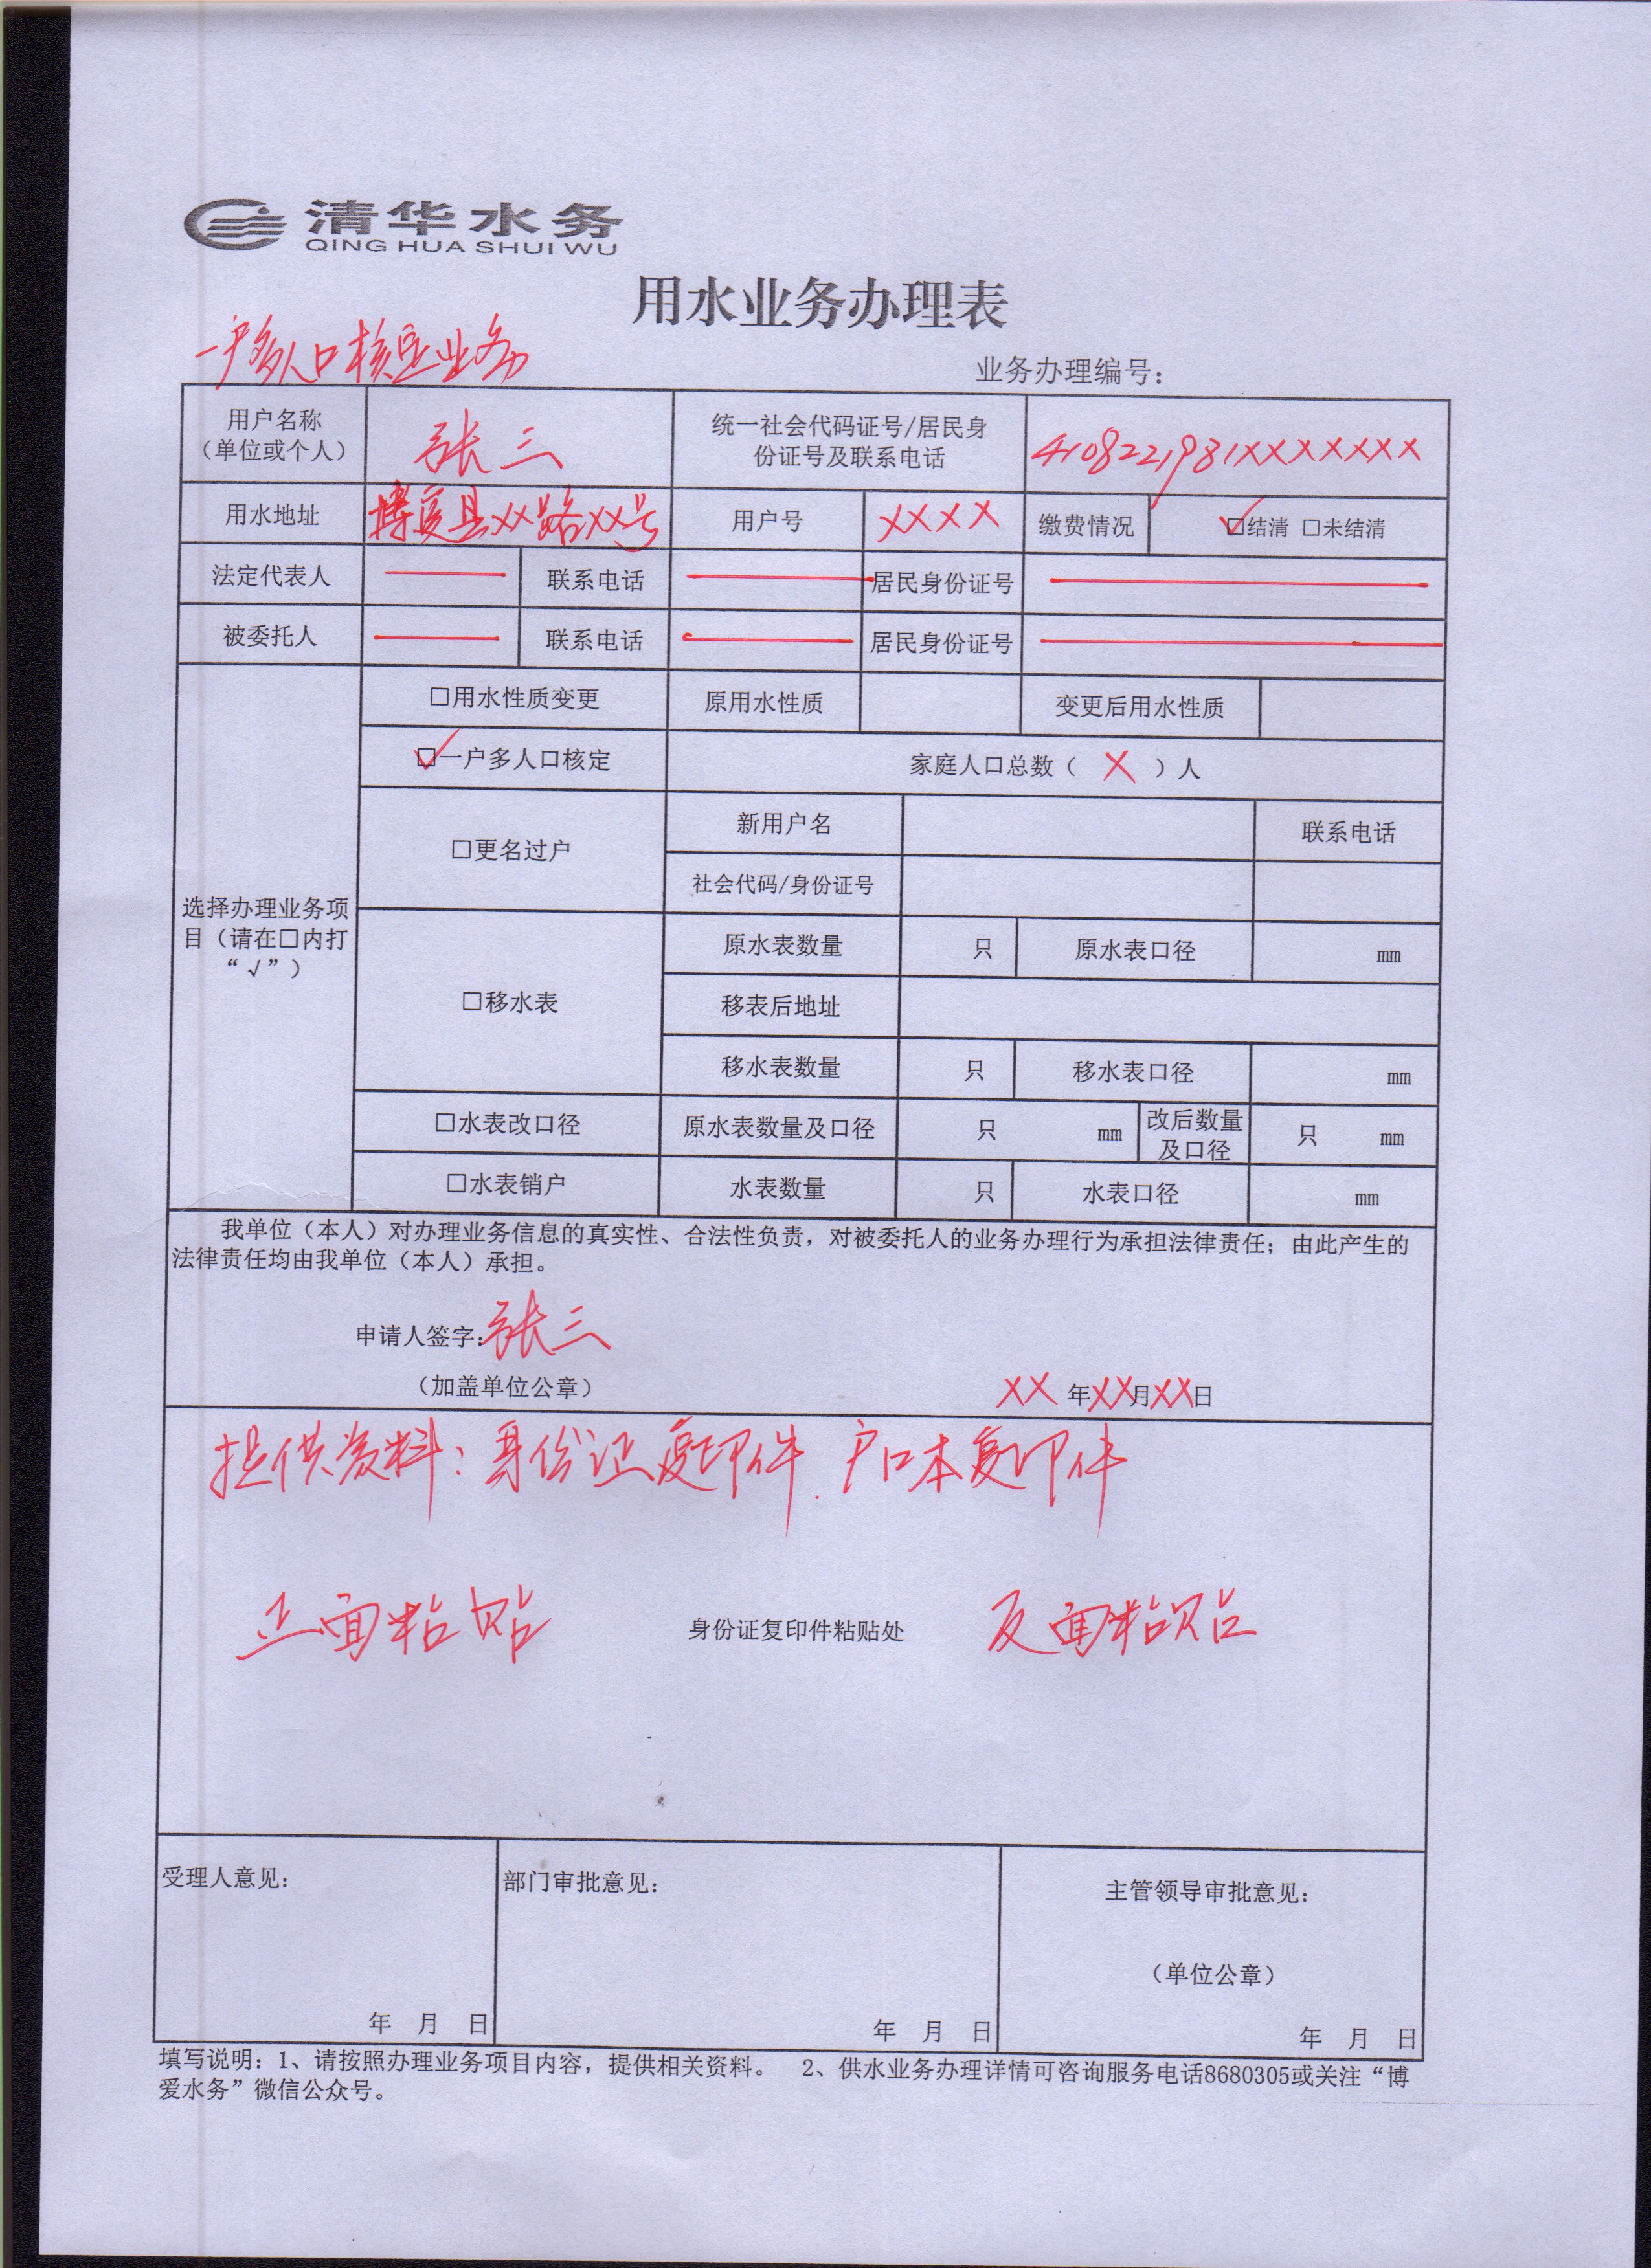 清华水务
QING HUA SHUI WU
用水业务办理表
一户多人口核定业务
业务办理编号：
用户名称
（单位或个人）
张三
统一社会代码证号/居民身
份证号及联系电话
4108221981XXXXXXXX
用水地址
博爱县XX路XX号
用户号
XXXX
缴费情况
☑结清 □未结清
法定代表人
联系电话
居民身份证号
被委托人
联系电话
居民身份证号
选择办理业务项
目（请在□内打
“√”）
□用水性质变更
原用水性质
变更后用水性质
☑一户多人口核定
家庭人口总数（ X ）人
□更名过户
新用户名
联系电话
社会代码/身份证号
□移水表
原水表数量
只
原水表口径
mm
移表后地址
移水表数量
只
移水表口径
mm
□水表改口径
原水表数量及口径
只 mm
改后数量
及口径
只 mm
□水表销户
水表数量
只
水表口径
mm
我单位（本人）对办理业务信息的真实性、合法性负责，对被委托人的业务办理行为承担法律责任；由此产生的
法律责任均由我单位（本人）承担。
申请人签字：张三
（加盖单位公章）
XX 年XX月XX日
提供资料：身份证复印件、户口本复印件
正面粘贴
身份证复印件粘贴处
反面粘贴
受理人意见：
年 月 日
部门审批意见：
年 月 日
主管领导审批意见：
（单位公章）
年 月 日
填写说明：1、请按照办理业务项目内容，提供相关资料。 2、供水业务办理详情可咨询服务电话8680305或关注“博
爱水务”微信公众号。